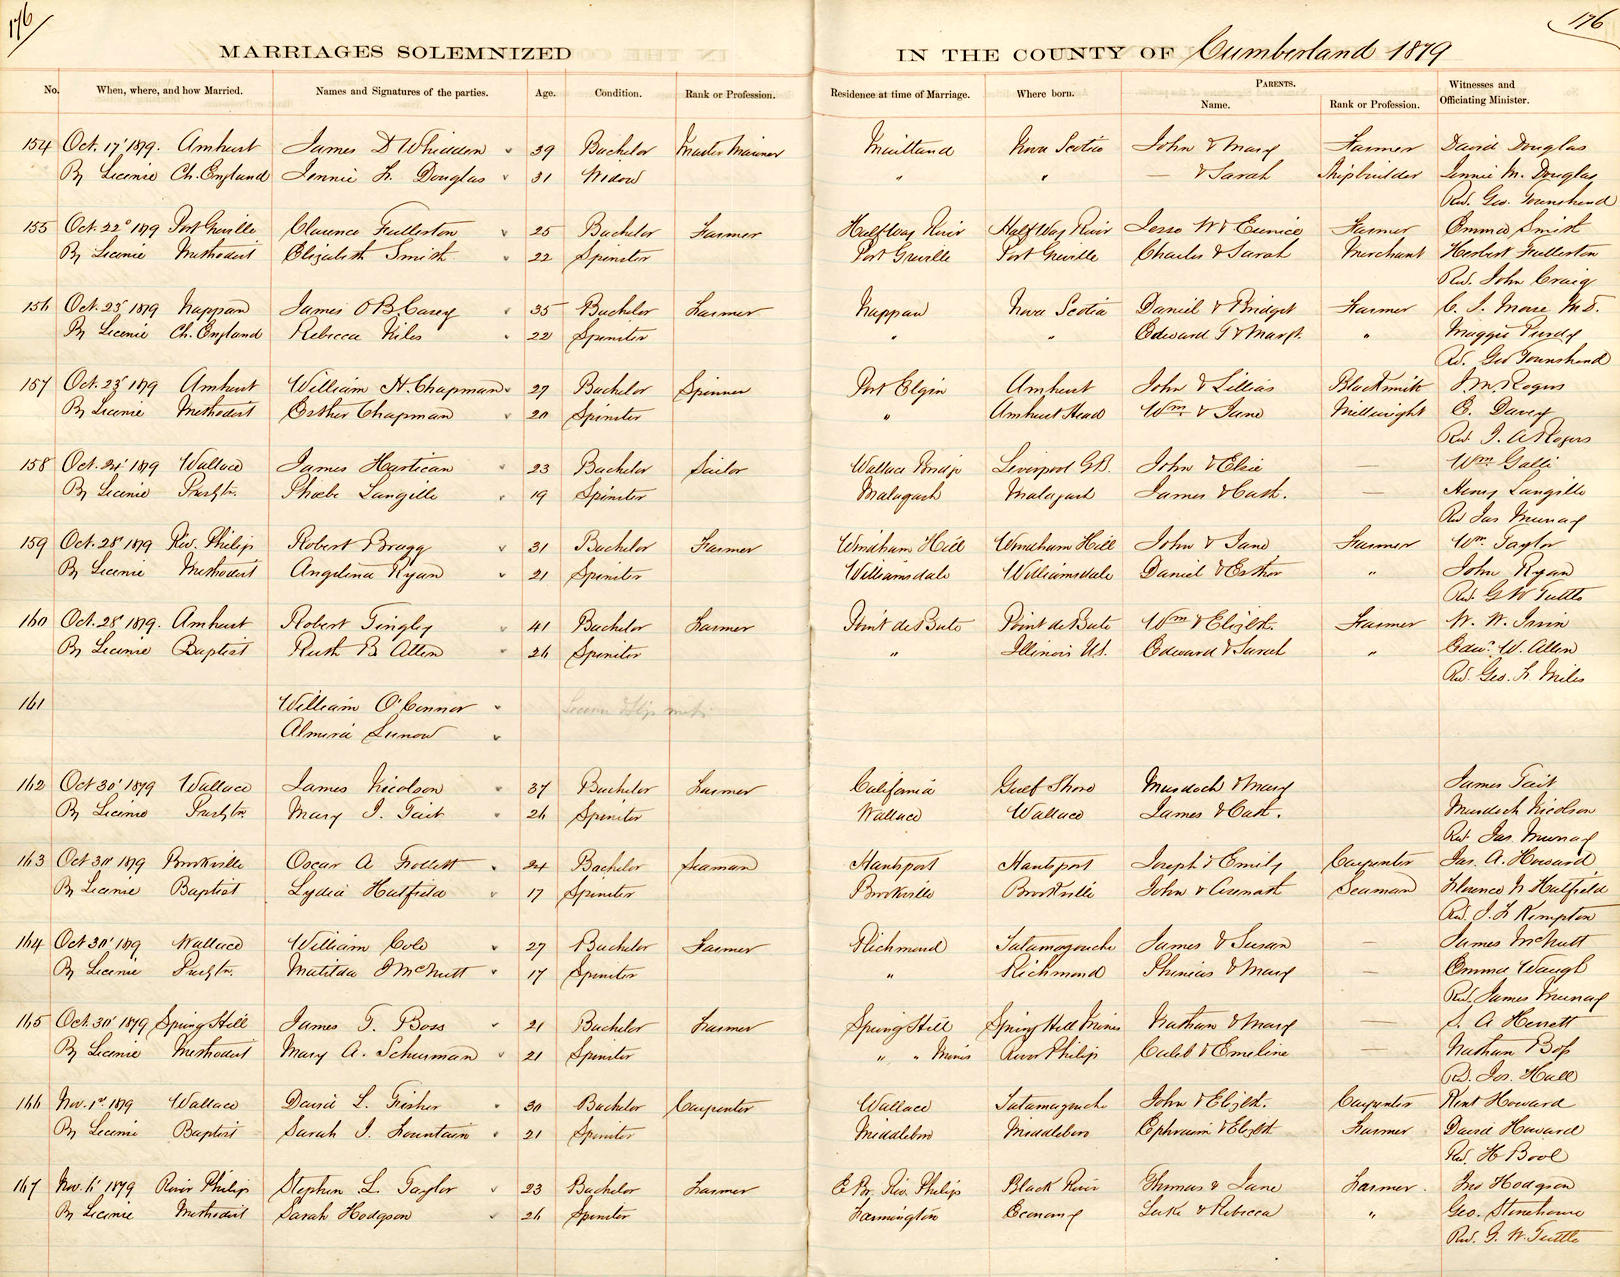 176
176
MARRIAGES SOLEMNIZED IN THE COUNTY OF Cumberland 1879
No. When, where, and how Married. Names and Signatures of the parties. Age. Condition. Rank or Profession. Residence at time of Marriage. Where born. PARENTS. Name. Rank or Profession. Witnesses and Officiating Minister.
154 Oct. 17' 1879. Amherst James D Whidden 39 Bachelor Master Mariner Maitland Nova Scotia John & Mary Farmer David Douglas
By License Ch. England Jennie F. Douglas 31 Widow " " — & Sarah Shipbuilder Jennie M. Douglas
Rev. Geo. Townshend
155 Oct. 22d 1879 Port Greville Clarence Fullerton 25 Bachelor Farmer Halfway River Half Way River Jesse W & Eunice Farmer Emma Smith
By License Methodist Elizabeth Smith 22 Spinster Port Greville Port Greville Charles & Sarah Merchant Herbert Fullerton
Rev. John Craig
156 Oct. 23' 1879 Nappan James O'B. Casey 35 Bachelor Farmer Nappan Nova Scotia Daniel & Bridget Farmer C. J. Morse M.D.
By License Ch. England Rebecca Kiles 22 Spinster " " Edward T & Margt. " Maggie Purdy
Rev. Geo Townshend
157 Oct. 23' 1879 Amherst William H. Chapman 27 Bachelor Spinner Port Elgin Amherst John & Lillias Blacksmith J. M. Rogers
By License Methodist Esther Chapman 20 Spinster " Amherst Head Wm & Jane Millwright E. Davey
Rev. J. A Rogers
158 Oct. 24' 1879 Wallace James Hartican 23 Bachelor Sailor Wallace Bridge Liverpool G.B. John & Eliza — Wm.
By License Presbtn. Phoebe Langille 19 Spinster Malagash Malagash James & Cath. — Henry Langille
Rev Jas Murray
159 Oct. 28' 1879 Riv. Philip Robert Bragg 31 Bachelor Farmer Windham Hill Windham Hill John & Jane Farmer Wm. Taylor
By License Methodist Angelina Ryan 21 Spinster Williamsdale Williamsdale Daniel & Esther " John Ryan
Rev. G W Tuttle
160 Oct. 28' 1879. Amherst Robert Tingley 41 Bachelor Farmer Point de Bute Point de Bute Wm & Elizbth. Farmer W. W. Irvin
By License Baptist Ruth B. Allen 26 Spinster " Illinois U.S. Edward & Sarah " Edw. W. Allen
Rev. Geo. F. Miles
161 William O'Connor
Almira
162 Oct 30' 1879 Wallace James Nicolson 37 Bachelor Farmer California Gulf Shore Murdoch & Mary James Tait
By License Presbtn. Mary J. Tait 26 Spinster Wallace Wallace James & Cath. Murdoch Nicolson
Rev. Jas. Murray
163 Oct 30' 1879 Brookville Oscar A Follett 24 Bachelor Seaman Hantsport Hantsport Joseph & Emily Carpenter Jas. A. Howard
By License Baptist Lydia Hatfield 17 Spinster Brookville Brookville John & Asenath Seaman Florence N Hatfield
Rev. J. F. Kempton
164 Oct 30' 1879 Wallace William Cole 27 Bachelor Farmer Richmond Tatamagouche James & Susan — James McNutt
By License Presbtn. Matilda J McNutt 17 Spinster " Richmond Phinias & Mary — Emma Waugh
Rev. James Murray
165 Oct. 30' 1879 Spring Hill James T. Boss 21 Bachelor Farmer Spring Hill Spring Hill Mines Nathan & Mary — S. A Herrett
By License Methodist Mary A. Schurman 21 Spinster " " Mines River Philip Caleb & Emeline — Nathan Boss
Rev. Jos. Hall
166 Nov. 1st 1879 Wallace David L. Fisher 30 Bachelor Carpenter Wallace Tatamagouche John & Elizbth. Carpenter Kent Howard
By License Baptist Sarah J. Fountain 21 Spinster Middleboro Middleboro Ephraim & Elizbth Farmer David Howard
Rev. H Bool
167 Nov. 6' 1879 River Philip Stephen L. Taylor 23 Bachelor Farmer E. Br. Riv. Philip Black River Thomas & Jane Farmer. Jno Hodgson
By License Methodist Sarah Hodgson 26 Spinster Farmington Economy Luke & Rebecca " Geo. Stonehouse
Rev. G. W. Tuttle